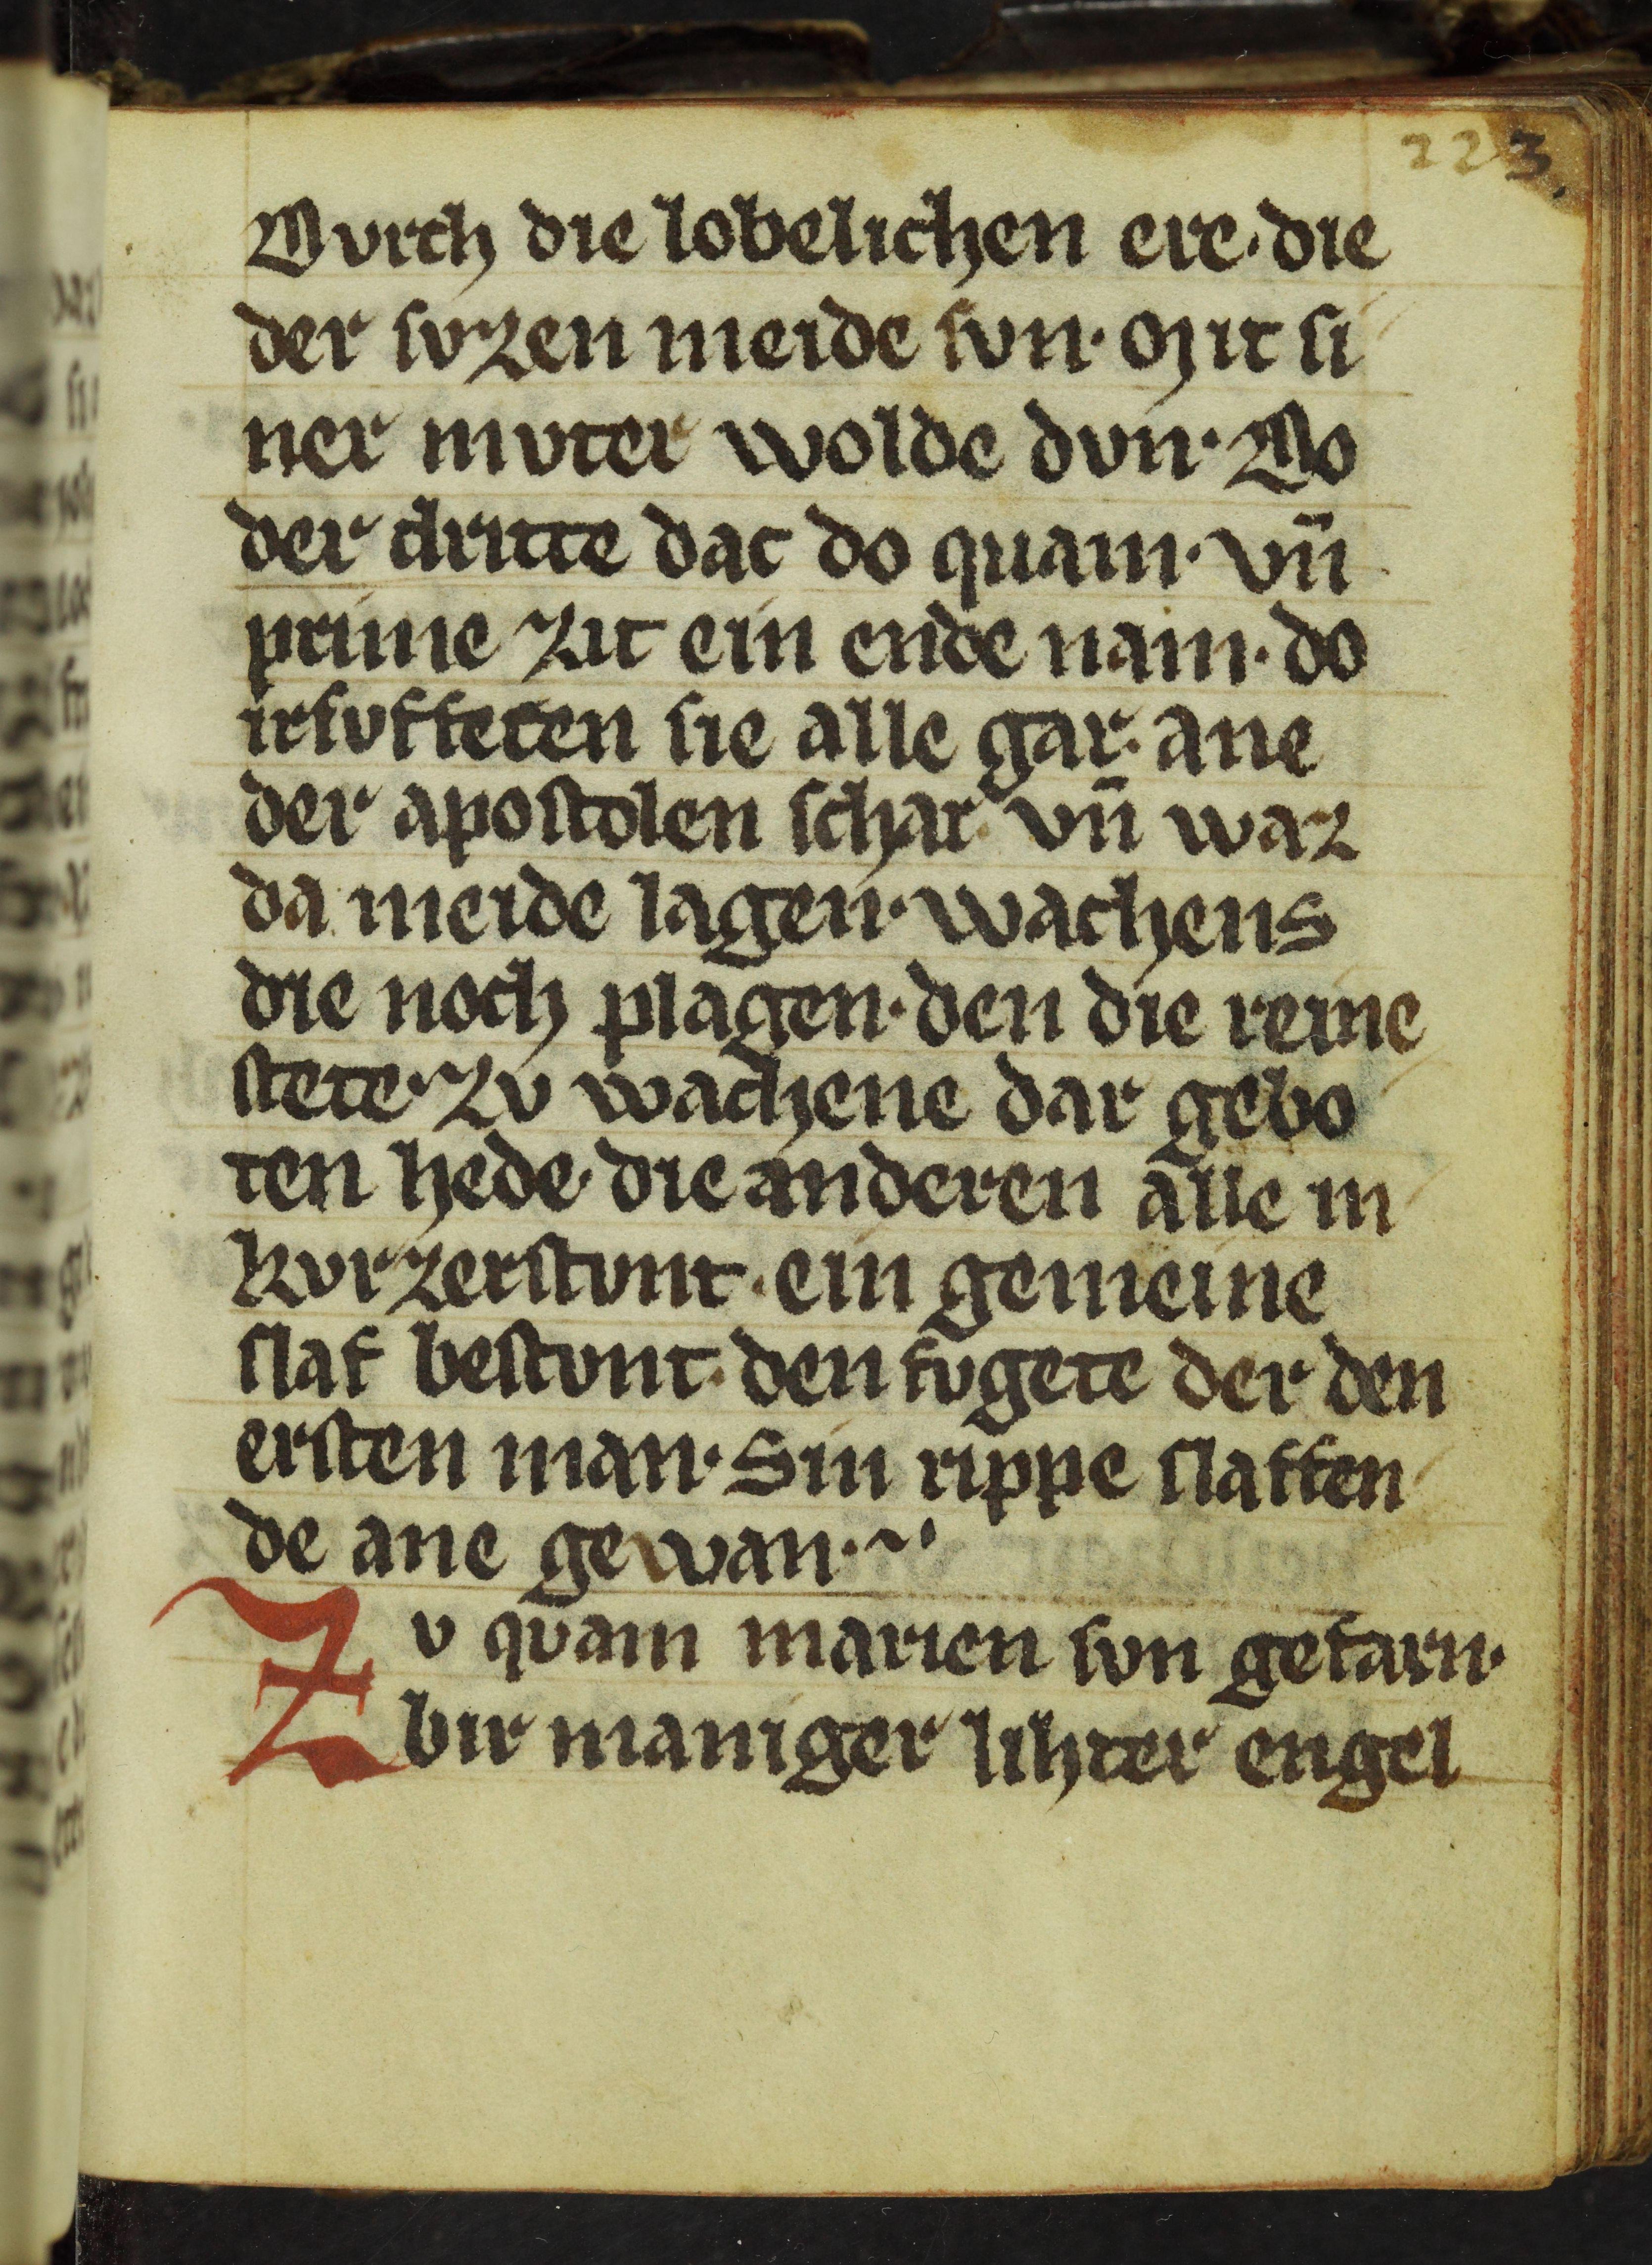 223.
Dvrch die lobelichen ere· die
der svzen meide svn· Mit si
ner mvter wolde dvn· Do
der dritte dac do quam· vn̄
prime zit ein ende nam· do
irsvfteten sie alle gar· ane
der apostolen schar· vn̄ waz
da meide lagen· wachens
die noch plagen· den die reine
stete· zv wachene dar gebo
ten hede· die anderen alle in
kvrzerstvnt· ein gemeine
slaf bestvnt· den fvgete der den
ersten man· Sin rippe slaffen
de ane gewan·
Zv qvam marien svn gefarn·
bir maniger lihter engel